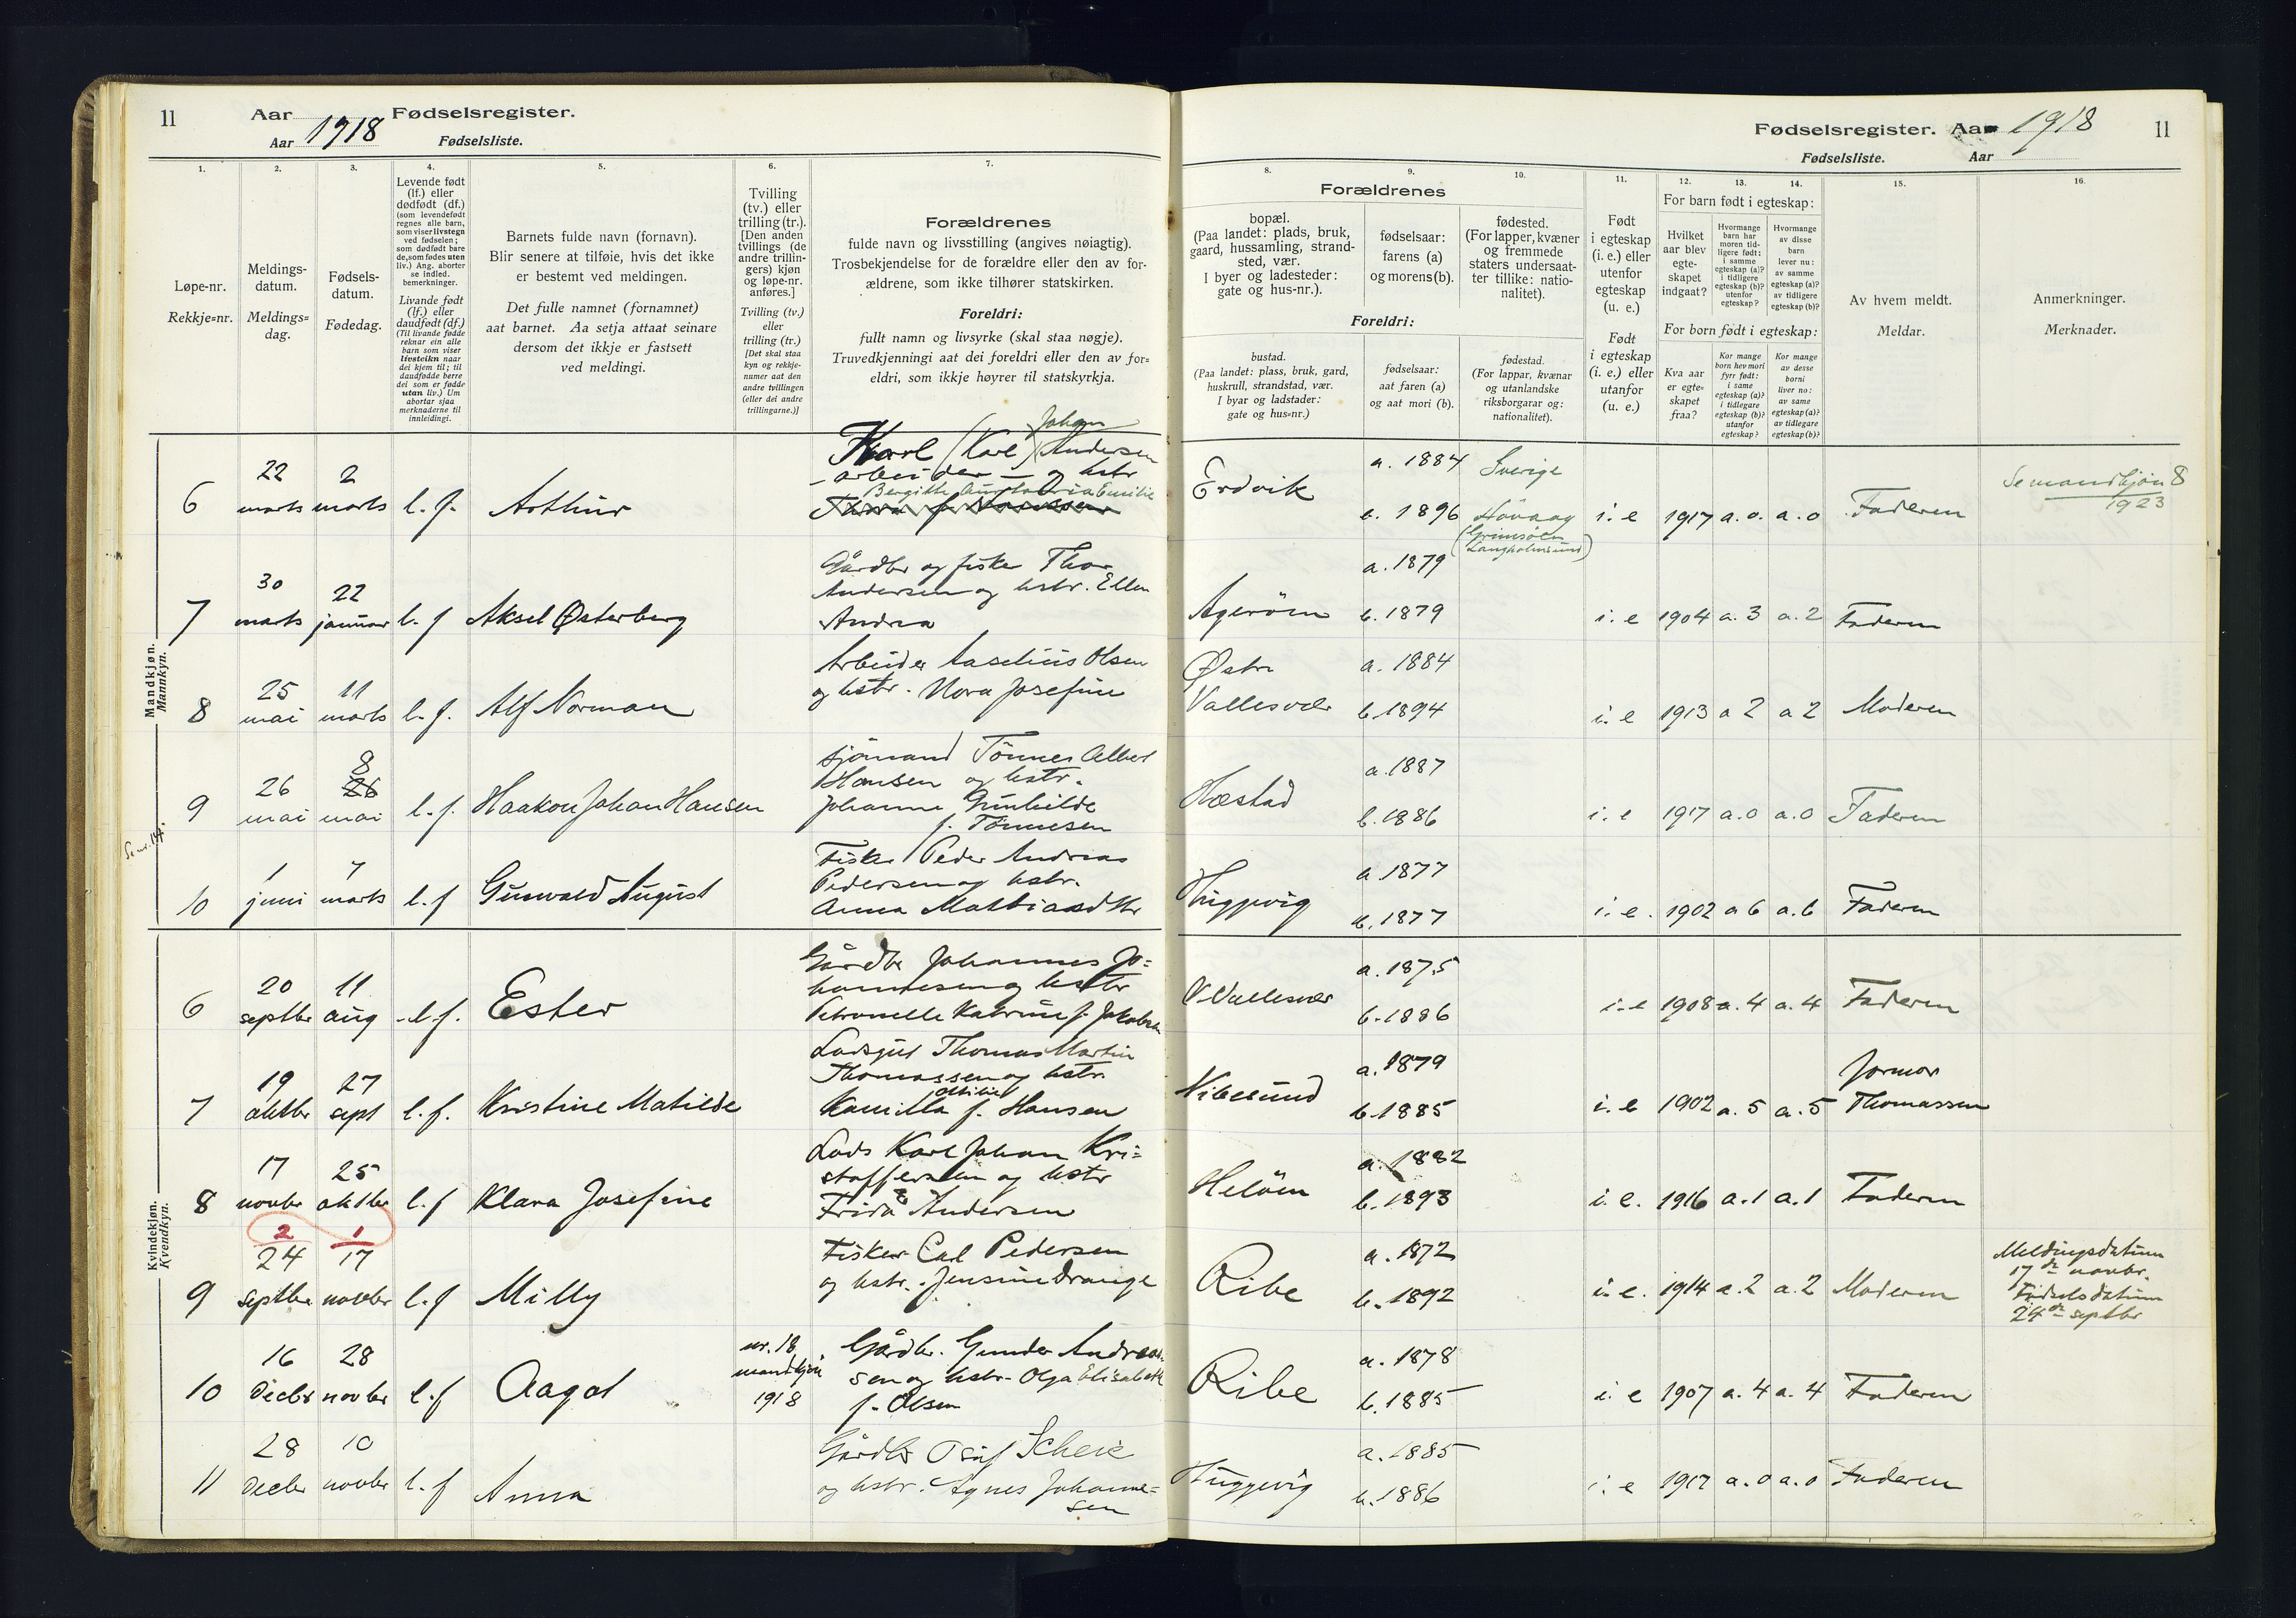 11
Aar 1918 Fødselsregister.
Aar Fødselsliste.
1.
2.
3.
4.
5.
6.
7.
Løpe-nr.
Rekkje=nr.
Meldings-
datum.
Meldings=
dag.
Fødsels-
datum.
Fødedag.
Levende født
(lf.) eller
dødfødt (df.)
(som levendefødt
regnes alle barn,
som viser livstegn
ved fødselen;
som dødfødt bare
de, som fødes uten
liv.) Ang. aborter
se indled.
bemerkninger.
Livande født
(lf.) eller
daudfødt (df.)
(Til livande fødde
reknar ein alle
barn som viser
livsteikn naar
dei kjem til; til
daudfødde berre
dei som er fødde
utan liv.) Um
abortar sjaa
merknaderne til
innleidingi.
Barnets fulde navn (fornavn).
Blir senere at tilføie, hvis det ikke
er bestemt ved meldingen.
Det fulle namnet (fornamnet)
aat barnet. Aa setja attaat seinare
dersom det ikkje er fastsett
ved meldingi.
Tvilling
(tv.) eller
trilling (tr.).
[Den anden
tvillings (de
andre trillin-
gers) kjøn
og løpe-nr.
anføres.]
Tvilling (tv.)
eller
trilling (tr.)
[Det skal staa
kyn og rekkje-
numer aat den
andre tvillingen
(eller dei andre
trillingarne.)]
Forældrenes
fulde navn og livsstilling (angives nøiagtig).
Trosbekjendelse for de forældre eller den av for-
ældrene, som ikke tilhører statskirken.
Foreldri:
fullt namn og livsyrke (skal staa nøgje).
Truvedkjenningi aat dei foreldri eller den av for=
eldri, som ikkje høyrer til statskyrkja.
Mandkjøn.
Mannkyn.
6
22
marts
2
marts
l. f.
Arthur
Johan
Karl (Karl) Andersen
arbeider og hstr
Bergitte Augusta Emilie
7
30
marts
22
januar
l. f
Aksel Østerberg
Gårdbr og fisker Thor
Andersen og hstr. Ellen
Andrea
8
25
mai
11
marts
l. f.
Alf Norman
Arbeider Aaselius Olsen
og hstr. Nora Josefine
9
26
mai
8
26
mai
l. f.
Haakon Johan Hansen
sjömand Tönnes Albert
Hansen og hstr.
Johanne Gunhilde
f. Tönnesen
Se nr. 14.
10
1
juni
7
marts
l. f
Gunvald August
Fisker Peder Andreas
Pedersen og hstr.
Anna Mathiasdtr
Kvindekjøn.
Kvendkyn.
6
20
septbr
11
aug
l. f.
Ester
Gårdbr Johannes Jo=
hannesen og hstr
Petronelle Katrine f. Jakobsen
7
19
oktbr
27
sept
l. f.
Kristine Matilde
Losgut Thomas Martin
Thomassen og hstr.
Kamilla f. Hansen
8
17
novbr
25
oktbr
l. f
Klara Josefine
Lods Karl Johan Kri=
stoffersen og hstr
Frida Andersen
9
2
24
septbr
1
17
novbr
l. f
Milly
Fisker Carl Pedersen
og hstr. Jensine Drange
10
16
decbr
28
novbr
l. f
Aagot
nr. 18
mandkjön
1918
Gårdbr. Gunder Andreas-
sen og hstr. Olga Elisabeth
f. Olsen
11
28
decbr
10
novbr
l. f
Anna
Gårdbr Olaf Scheie
og hstr. Agnes Johanne=
sen
Fødselsregister. Aar 1918
11
Fødselsliste. Aar
8.
9.
10.
11.
12.
13.
14.
15.
16.
Forældrenes
bopæl.
(Paa landet: plads, bruk,
gaard, hussamling, strand-
sted, vær.
I byer og ladesteder:
gate og hus-nr.).
fødselsaar:
farens (a)
og morens (b).
fødested.
(For lapper, kvæner
og fremmede
staters undersaat-
ter tillike: natio-
nalitet).
Foreldri:
bustad.
(Paa landet: plass, bruk, gard,
huskrull, strandstad, vær.
I byar og ladstader:
gate og hus=nr.)
fødselsaar:
aat faren (a)
og aat mori (b).
fødestad.
(For lappar, kvænar
og utanlandske
riksborgarar og:
nationalitet).
Født
i egteskap
(i. e.) eller
utenfor
egteskap
(u. e.)
Født
i egteskap
(i. e.) eller
utanfor
(u. e.)
For barn født i egteskap:
Hvilket
aar blev
egte-
skapet
indgaat?
Hvormange
barn har
moren tid-
ligere født:
i samme
egteskap (a)?
i tidligere
egteskap (b)?
utenfor
egteskap?
Hvormange
av disse
barn
lever nu:
av samme
egteskap (a)?
av tidligere
egteskap (b)?
For born født i egteskap:
Kva aar
er egte-
skapet
fraa?
Kor mange
born hev mori
fyrr født:
i same
egteskap (a)?
i tidlegare
egteskap (b)?
utanfor
egteskap?
Kor mange
av desse
borni
liver no:
av same
egteskap (a)?
av tidlegare
egteskap (b)?
Av hvem meldt.
Meldar.
Anmerkninger.
Merknader.
Erdvik
a. 1884
b. 1896
Sverige
Hövaag
(Grimsöen
Langholmsund)
i. e
1917
a. 0.
a. 0
Faderen
Se mandkjön 8
1923
Agerøen
a. 1879
b. 1879
i. e
1904
a. 3
a. 2
Faderen
Østre
Vallesvær
a. 1884
b. 1894
i. e
1913
a 2
a 2
Moderen
Hæstad
a. 1887
b. 1886
i. e
1917
a. 0
a. 0
Faderen
Thuggevig
a 1877
b. 1877
i. e.
1902
a 6
a. 6
Faderen
V Vallesvær
a. 1875
b. 1886
i. e
1908
a. 4
a. 4
Faderen
Vibesund
a. 1879
b. 1885
i. e
1902
a. 5
a. 5
formor
Thomassen
Helöen
a. 1882
b. 1893
i. e.
1916
a. 1
a. 1
Faderen
Ribe
a. 1872
b. 1892
i. e.
1914
a. 2
a. 2
Moderen
Meldingsdatum
17de novbr.
Födselsdatum
24de septbr
Ribe
a. 1878
b. 1885
i. e
1907
a. 4
a. 4
Faderen
Thuggevig
a. 1885
b. 1886
i. e
1917
a. 0
a. 0
Faderen